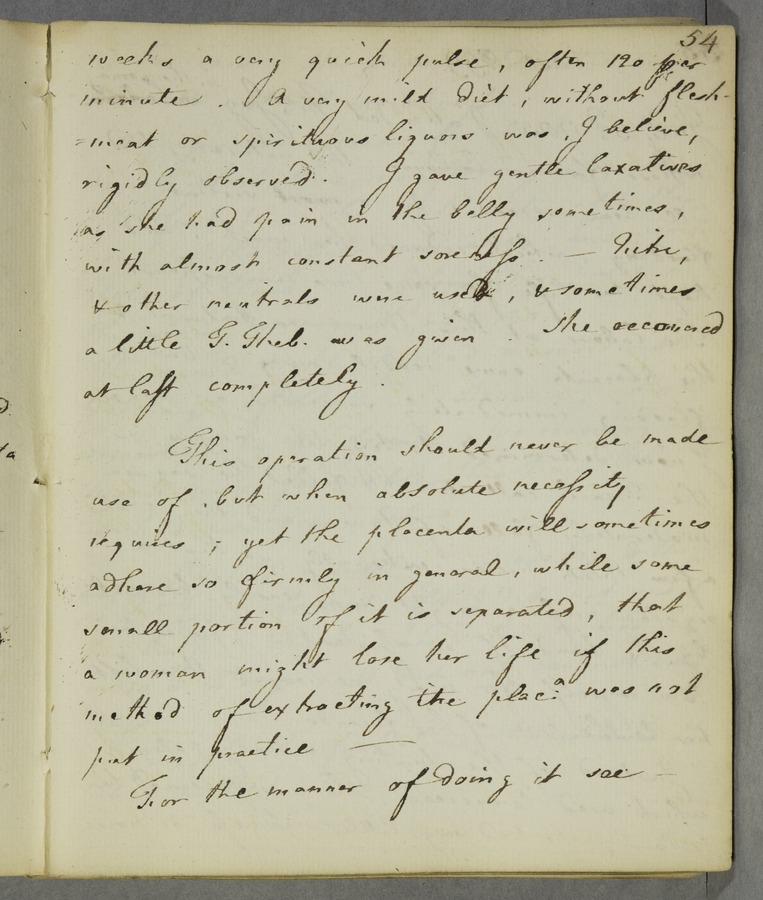 54
weeks a very quick pulse, often 120 per
minute. A very mild diet, without flesh-
=meat or spirituous liquors was, I believe,
rigidly observed. I gave gentle laxatives
as she had pain in the belly sometimes,
with almost constant soreness. — Nitre,
& other neutrals were used, & sometimes
a little G. Theb. was given. She recovered
at last completely.
This operation should never be made
use of, but when absolute necessity
requires; yet the placenta will sometimes
adhere so firmly in general, while some
small portion of it is separated, that
a woman might lose her life if this
method of extracting the plac:a was not
put in practice —
For the manner of doing it see —